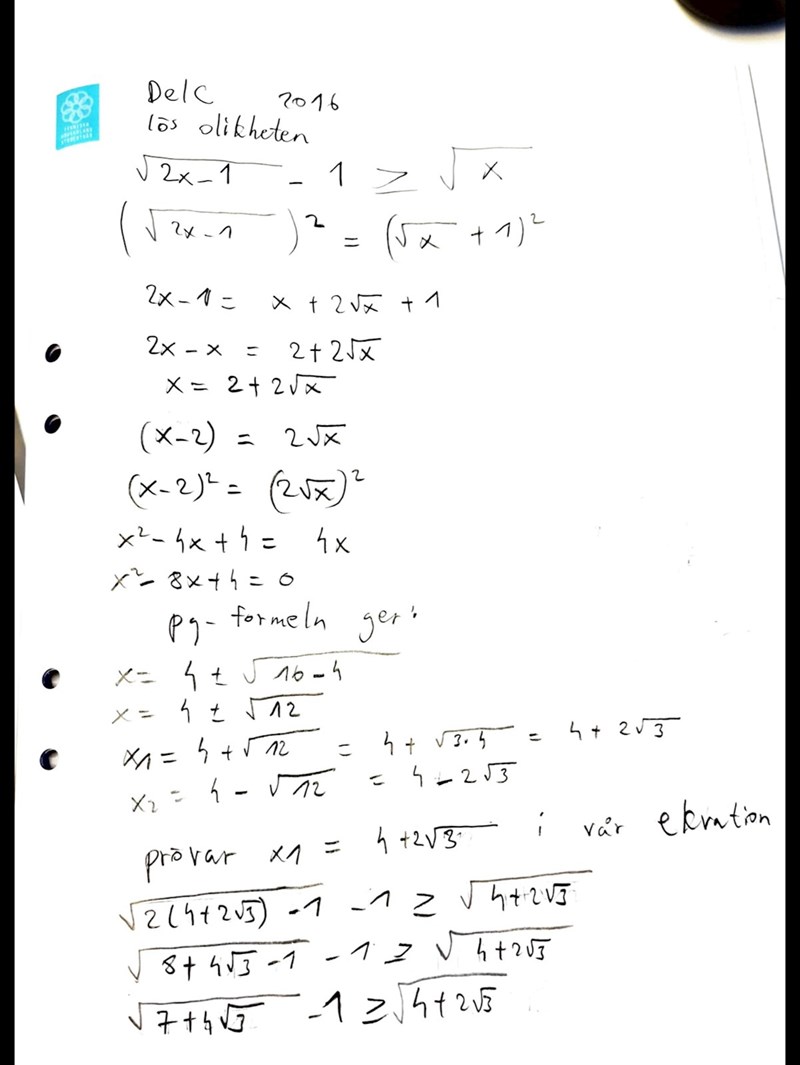 DelC 2016
lös olikheten
√(2x-1) - 1 ≥ √x
(√(2x-1))² = (√x + 1)²
2x-1 = x + 2√x + 1
2x - x = 2 + 2√x
x = 2 + 2√x
(x-2) = 2√x
(x-2)² = (2√x)²
x² - 4x + 4 = 4x
x² - 8x + 4 = 0
pq-formeln ger:
x = 4 ± √(16-4)
x = 4 ± √12
x1 = 4 + √12 = 4 + √(3·4) = 4 + 2√3
x2 = 4 - √12 = 4 - 2√3
prövar x1 = 4+2√3 i vår ekvation
√(2(4+2√3) - 1) - 1 ≥ √(4+2√3)
√(8+4√3-1) - 1 ≥ √(4+2√3)
√(7+4√3) - 1 ≥ √(4+2√3)